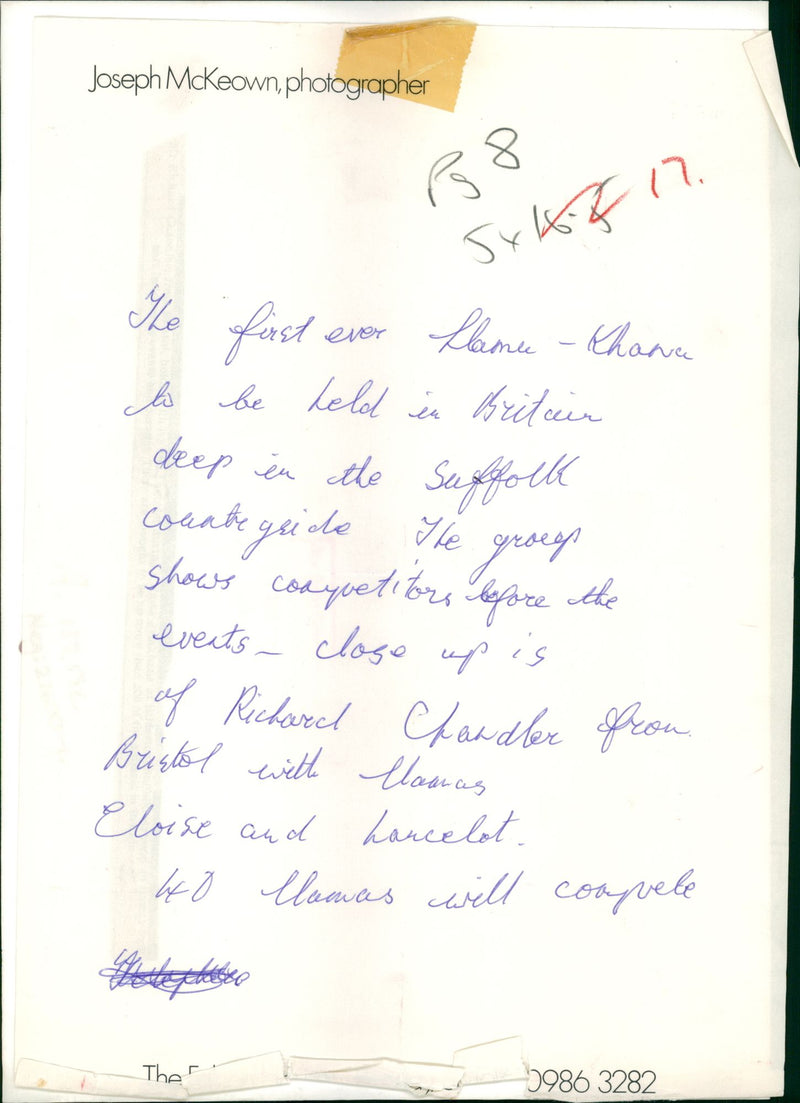 Joseph McKeown, photographer
Pg 8
5 x 17.
The first ever Llama - Khana
to be held in Britain
deep in the Suffolk
countryside The group
shows competitors before the
events - close up is
of Richard Chandler from
Bristol with llamas
Eloise and Lancelot.
40 llamas will compete
The
0986 3282